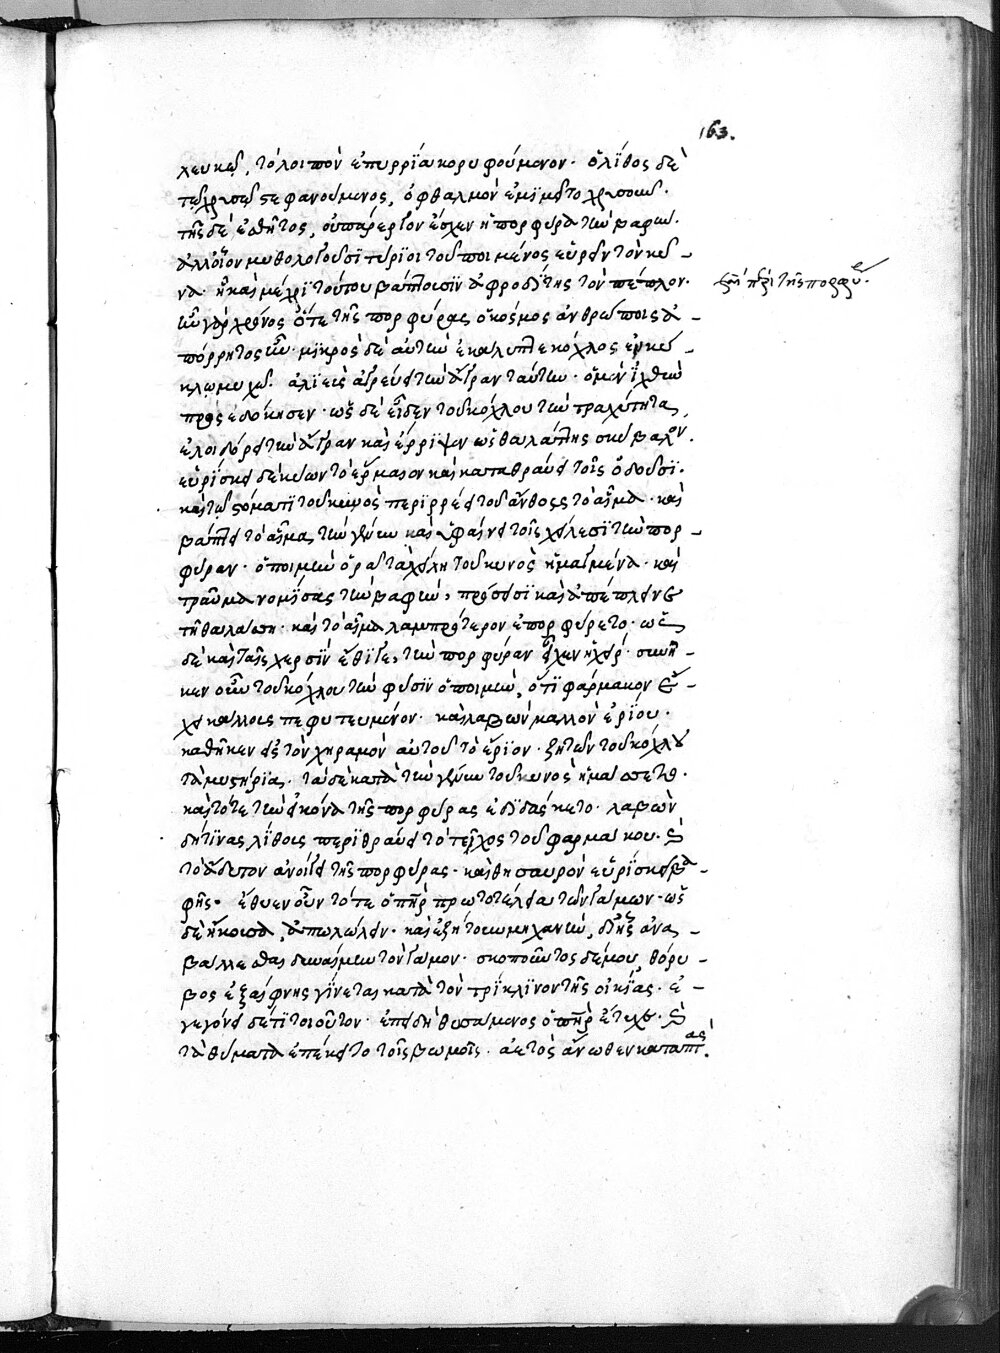 163.
λευκῷ, τὸ λοιπὸν ἐπυρρία κορυφούμενον· ὁ λίθος δὲ
τῷ χρυσῷ στεφανούμενος, ὀφθαλμὸν ἐμιμεῖτο χρυσοῦν·
τῆς δὲ ἐσθῆτος, οὐ πάρεργον ἔσχεν ἡ πορφύρα τὴν βαφὴν·
ἀλλ' οἵαν μυθολογοῦσι τύριοι τοῦ ποιμένος εὑρεῖν τὸν κύ-
να· ᾗ καὶ μέχρι τούτου βάπτουσιν ἀφροδίτης τὸν πέπλον·
ση περὶ τῆς πορφύρ
ἦν γὰρ χρόνος ὅτε τῆς πορφύρας ὁ κόσμος ἀνθρώποις ἀ-
πόρρητος ἦν· μικρὸς δὲ αὐτὴν ἐκάλυπτε κόχλος ἐν κύ-
κλῳ μυχῷ· ἁλιεὺς ἀγρεύει τὴν ἄγραν ταύτην· ὁ μὲν ἰχθὺν
προσεδόκησεν· ὡς δὲ εἶδεν τοῦ κόχλου τὴν τραχύτητα,
ἐλοιδόρει τὴν ἄγραν καὶ ἔρριψεν ὡς θαλάττης σκύβαλον.
εὑρίσκει δὲ κύων τὸ ἕρμαιον καὶ καταθραύει τοῖς ὀδοῦσι·
καὶ τῷ στόματι τοῦ κυνὸς περιρρέει τοῦ ἄνθους τὸ αἷμα· καὶ
βάπτει τὸ αἷμα τὴν γένυν καὶ ὑφαίνει τοῖς χείλεσι τὴν πορ-
φύραν· ὁ ποιμὴν ὁρᾷ τὰ χείλη τοῦ κυνὸς ἡμαγμένα· καὶ
τραῦμα νομίσας τὴν βαφὴν, πρόσεισι καὶ ἀπέπλυνε
τῇ θαλάσσῃ· καὶ τὸ αἷμα λαμπρότερον ἐπορφύρετο· ὡς
δὲ καὶ ταῖς χερσὶν ἔθιγε, τὴν πορφύραν εἶχεν ἡ χείρ· συνῆ-
κεν οὖν τοῦ κόχλου τὴν φύσιν ὁ ποιμὴν, ὅτι φάρμακον ἔ-
χει κάλλους πεφυτευμένον· καὶ λαβὼν μαλλὸν ἐρίου·
καθῆκεν εἰς τὸν χηραμὸν αὐτοῦ τὸ ἔριον· ζητῶν τοῦ κόχλου
τὰ μυστήρια· τὸ δὲ κατὰ τὴν γένυν τοῦ κυνὸς ἡμάσσετο·
καὶ τότε τὴν εἰκόνα τῆς πορφύρας ἐδιδάσκετο· λαβὼν
δή τινας λίθους περιθραύει τὸ τεῖχος τοῦ φαρμάκου· καὶ
τὸ ἄδυτον ἀνοίγει τῆς πορφύρας· καὶ θησαυρὸν εὑρίσκει βα-
φῆς· ἔθυεν οὖν τότε ὁ πὴρ πρωτοτέλεια τῶν γάμων· ὡς
δὲ ἤκουσα, ἀπωλώλειν· καὶ ἐζήτουν μηχανὴν, δι' ἧς ἀνα-
βαλλέσθαι δυναίμην τὸν γάμον· σκοποῦντος δέ μου, θόρυ-
βος ἐξαίφνης γίνεται κατὰ τὸν τρίκλινον τῆς οἰκίας· ἐ-
γεγόνει δέ τι τοιοῦτον· ἐπειδὴ θυσάμενος ὁ πὴρ ἔτυχε· καὶ
τὰ θύματα ἐπέκειτο τοῖς βωμοῖς· ἀετὸς ἄνωθεν καταπτὰς.